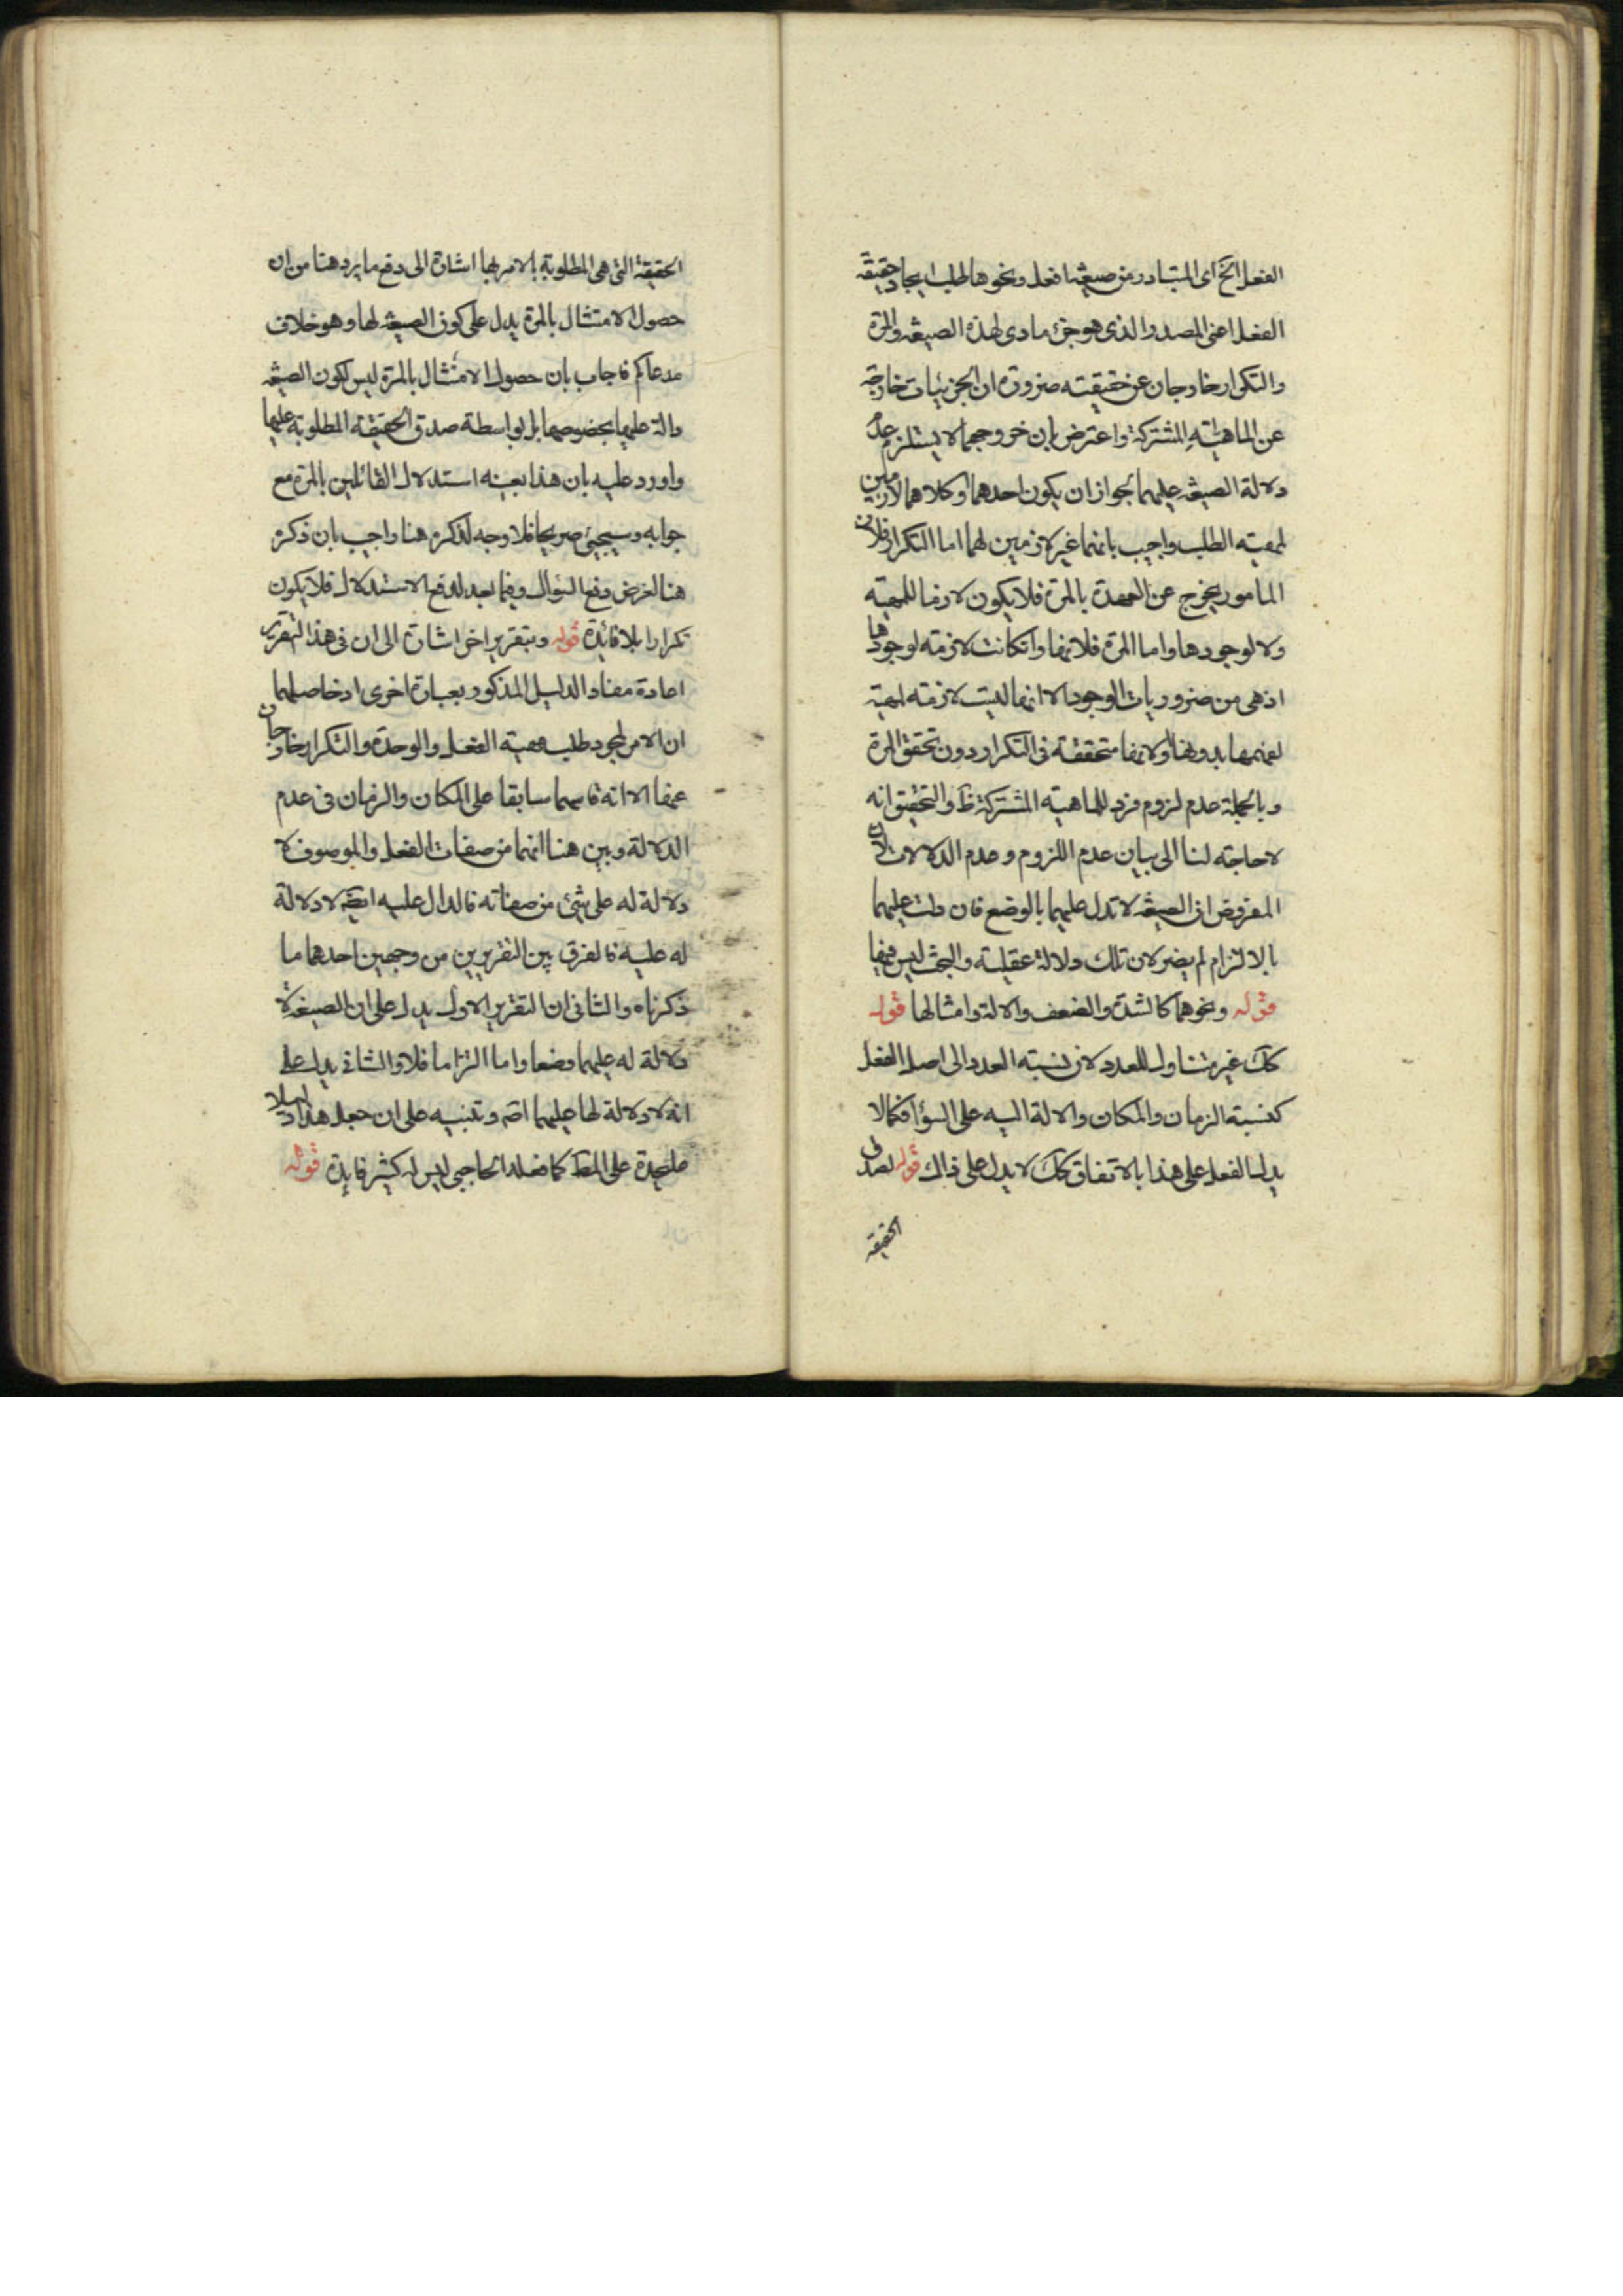 الفعل الخ اى المتبادر من صيغة افعل ونحوها طلب ايجاد حقيقة
الفعل اعنى المصدر الذى هو جزء مادى لهذه الصيغة والمرة
والتكرار خارجان عن حقيقته ضرورة ان الجزئيات خارجة
عن الماهية المشتركة واعترض بان خروجهما لا يستلزم عدم
دلالة الصيغة عليهما لجواز ان يكون احدهما او كلاهما لازمين
لمهية الطلب واجيب بانهما غير لازمين لهما اما التكرار فلان
المامور يخرج عن العهدة بالمرة فلا يكون لازما للمهية
ولا لوجودها واما المرة فلانها وان كانت لازمة لوجودها
اذ هى من ضروريات الوجود الا انها ليست لازمة لمهية
لفهمها بدونها ولانها متحققة فى التكرار دون تحقق المرة
وبالجملة عدم لزوم فرد للماهية المشتركة ظ والتحقيق انه
لا حاجة لنا الى بيان عدم اللزوم وعدم الدلالات لان
المفروض ان الصيغة لا تدل عليهما بالوضع فان دلت عليهما
بالالتزام لم يضر لان تلك دلالة عقلية والبحث ليس فيها
قوله ونحوهما كالشدة والضعف والالة وامثالها قوله
كك غير متناول للعدد لان نسبة العدد الى اصل الفعل
كنسبة الزمان والمكان والالة اليه على السواء فكما لا
يدل الفعل على هذا بالاتفاق كك لا يدل على ذاك قوله لصدق
الحقيقة
الحقيقة التى هى المطلوبة بالامر بها اشارة الى دفع ما يرد هنا من ان
حصول الامتثال بالمرة يدل على كون الصيغة لها وهو خلاف
مدعاكم فاجاب بان حصول الامتثال بالمرة ليس لكون الصيغة
دالة عليها بخصوصها بل بواسطة صدق الحقيقة المطلوبة عليها
واورد عليه بان هذا بعينه استدلال القائلين بالمرة مع
جوابه وسيجئ صريحا فلا وجه لذكره هنا واجيب بان ذكره
هنا لغرض دفع السؤال وفيما بعد لدفع الاستدلال فلا يكون
تكرارا بلا فائدة قوله وبتقرير اخر اشارة الى ان فى هذا التقرير
اعادة مفاد الدليل المذكور بعبارة اخرى اذ حاصلهما
ان الامر لمجرد طلب مهية الفعل والوحدة والتكرار خارجان
عنها الا انه قاسهما سابقا على المكان والزمان فى عدم
الدلالة وبين هنا انهما من صفات الفعل والموصوف لا
دلالة له على شئ من صفاته فالدال عليه ايضا لا دلالة
له عليه فالفرق بين التقريرين من وجهين احدهما ما
ذكرناه والثانى ان التقرير الاول يدل على ان الصيغة لا
دلالة له عليهما وضعا واما التزاما فلا والثانى يدل على
انه لا دلالة لها عليهما اصلا وتنبيه على ان جعل هذا دليلا
عليحدة على المط كما فعله الحاجبى ليس له كثير فايدة قوله